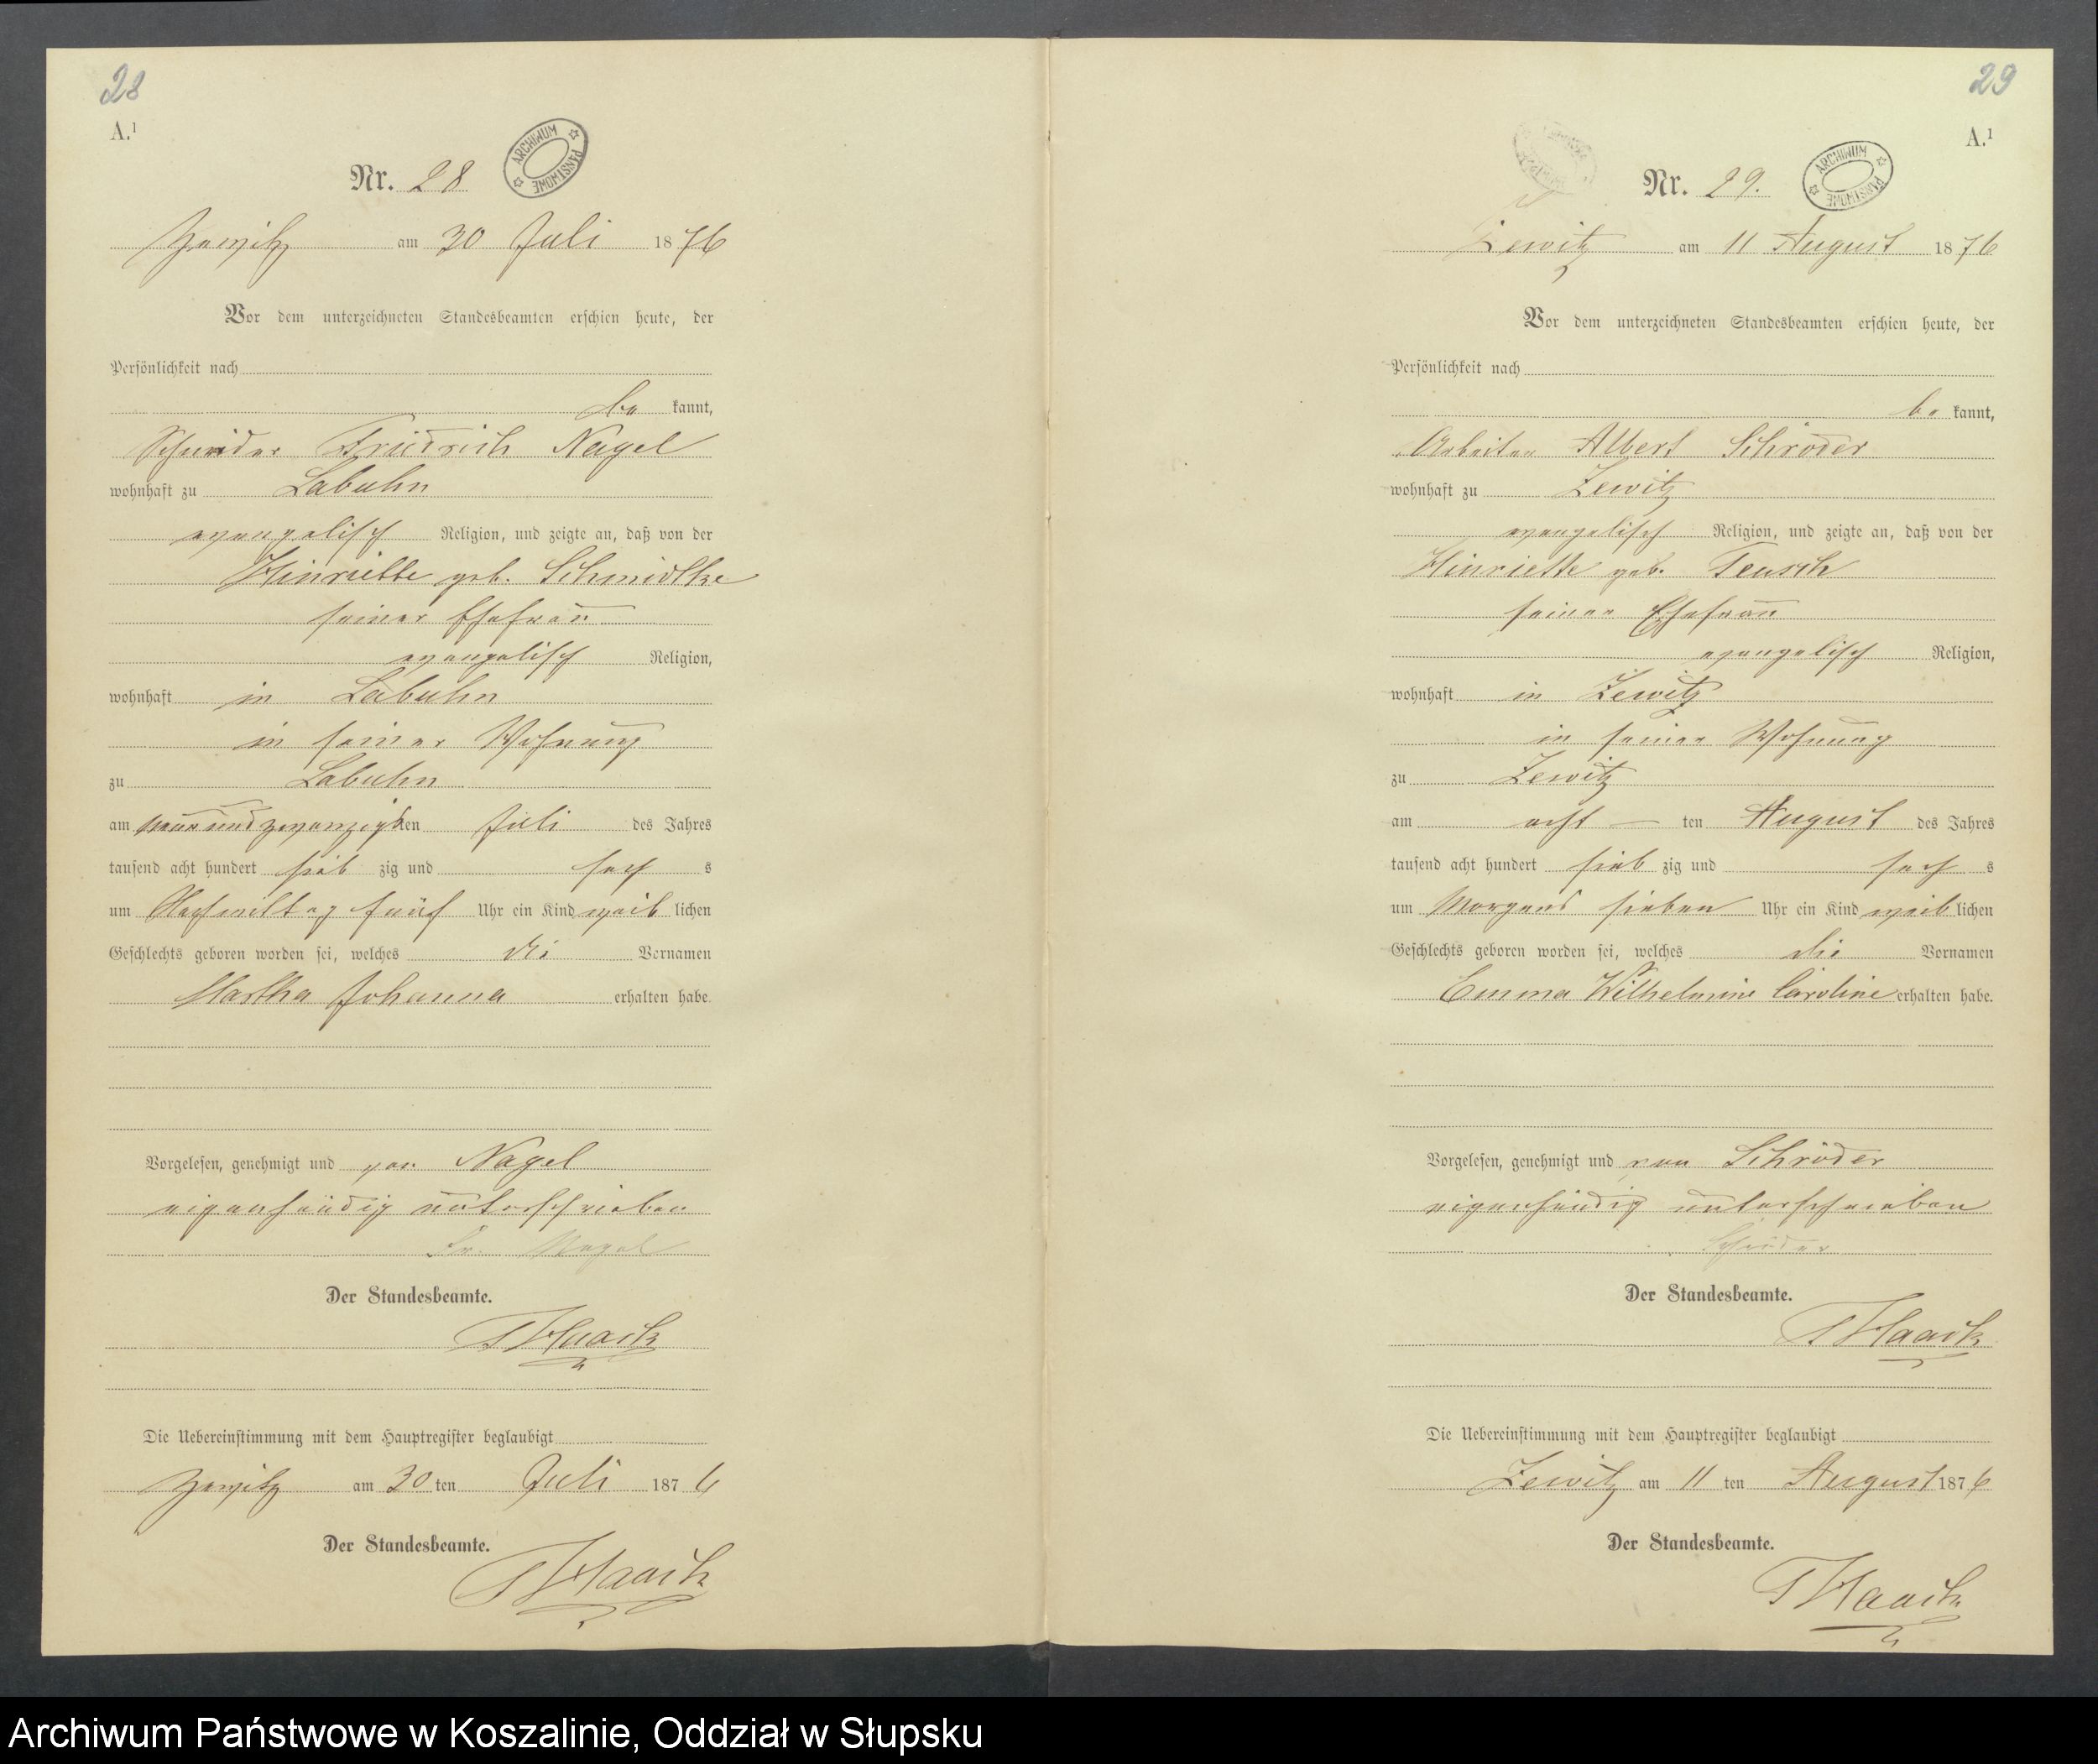 28
A.¹
ARCHIWUM PAŃSTWOWE
Nr. 28
Zewitz am 30 Juli 1876
Vor dem unterzeichneten Standesbeamten erschien heute, der
Persönlichkeit nach
be kannt,
Schneider Friedrich Nagel
wohnhaft zu Labuhn
evangelisch Religion, und zeigte an, daß von der
Hinriette geb. Schmidtke
seiner Ehefrau
evangelisch Religion,
wohnhaft in Labuhn
in seiner Wohnung
zu Labuhn
am neunundzwanzigsten Juli des Jahres
tausend acht hundert sieb zig und sech s
um Nachmittag fünf Uhr ein Kind weib lichen
Geschlechts geboren worden sei, welches die Vornamen
Martha Johanna erhalten habe.
Vorgelesen, genehmigt und von Nagel
eigenhändig unterschrieben
Fr. Nagel
Der Standesbeamte.
Haack
Die Uebereinstimmung mit dem Hauptregister beglaubigt
Zewitz am 30 ten Juli 1876
Der Standesbeamte.
Haack
29
A.¹
ARCHIWUM PAŃSTWOWE
Nr. 29.
Zewitz am 11 August 1876
Vor dem unterzeichneten Standesbeamten erschien heute, der
Persönlichkeit nach
be kannt,
Arbeiter Albert Schröder
wohnhaft zu Zewitz
evangelisch Religion, und zeigte an, daß von der
Hinriette geb. Teusch
seiner Ehefrau
evangelisch Religion,
wohnhaft in Zewitz
in seiner Wohnung
zu Zewitz
am acht — ten August des Jahres
tausend acht hundert sieb zig und sech s
um Morgens sieben Uhr ein Kind weib lichen
Geschlechts geboren worden sei, welches die Vornamen
Emma Wilhelmine Caroline erhalten habe.
Vorgelesen, genehmigt und von Schröder
eigenhändig unterschrieben
Schröder
Der Standesbeamte.
Haack
Die Uebereinstimmung mit dem Hauptregister beglaubigt
Zewitz am 11 ten August 1876
Der Standesbeamte.
Haack
Archiwum Państwowe w Koszalinie, Oddział w Słupsku